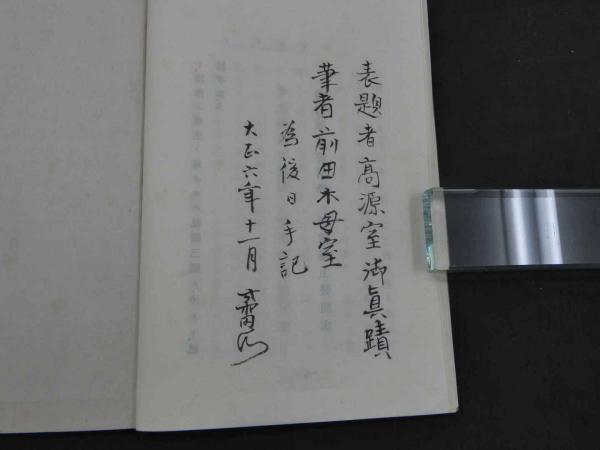 表題者高源室御眞蹟
筆者前田木母室
為後日手記
大正六年十一月